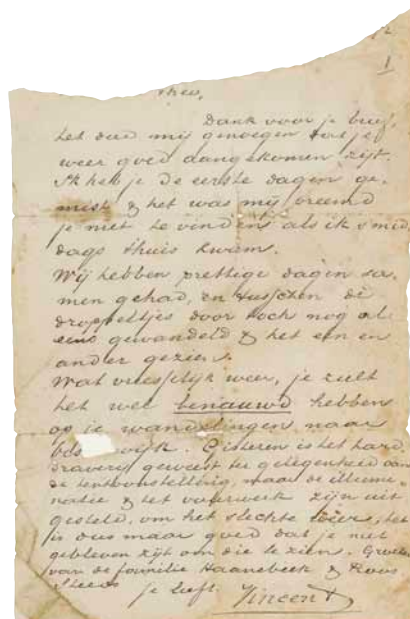 Theo,
Dank voor je brief,
het deed mij genoegen dat je
weer goed aangekomen zijt.
Ik heb je de eerste dagen ge-
mist & het was mij vreemd
je niet te vinden als ik s'mid-
dags thuis kwam.
Wij hebben prettige dagen sa-
men gehad, en tusschen de
droppeltjes door toch nog al
eens gewandeld & het een en
ander gezien.
Wat vreesselijk weer, je zult
het wel benauwd hebben
op je wandelingen naar
Gisteren is het hard-
draverij geweest ter gelegenheid van
de tentoonstelling, maar de illumi-
natie & het vuurwerk zijn uit-
gesteld, om het slechte weer, het
is dus maar goed dat je niet
gebleven zijt om die te zien. Groeten
van de familie Haanebeek & Roos
steeds
je liefh. Vincent